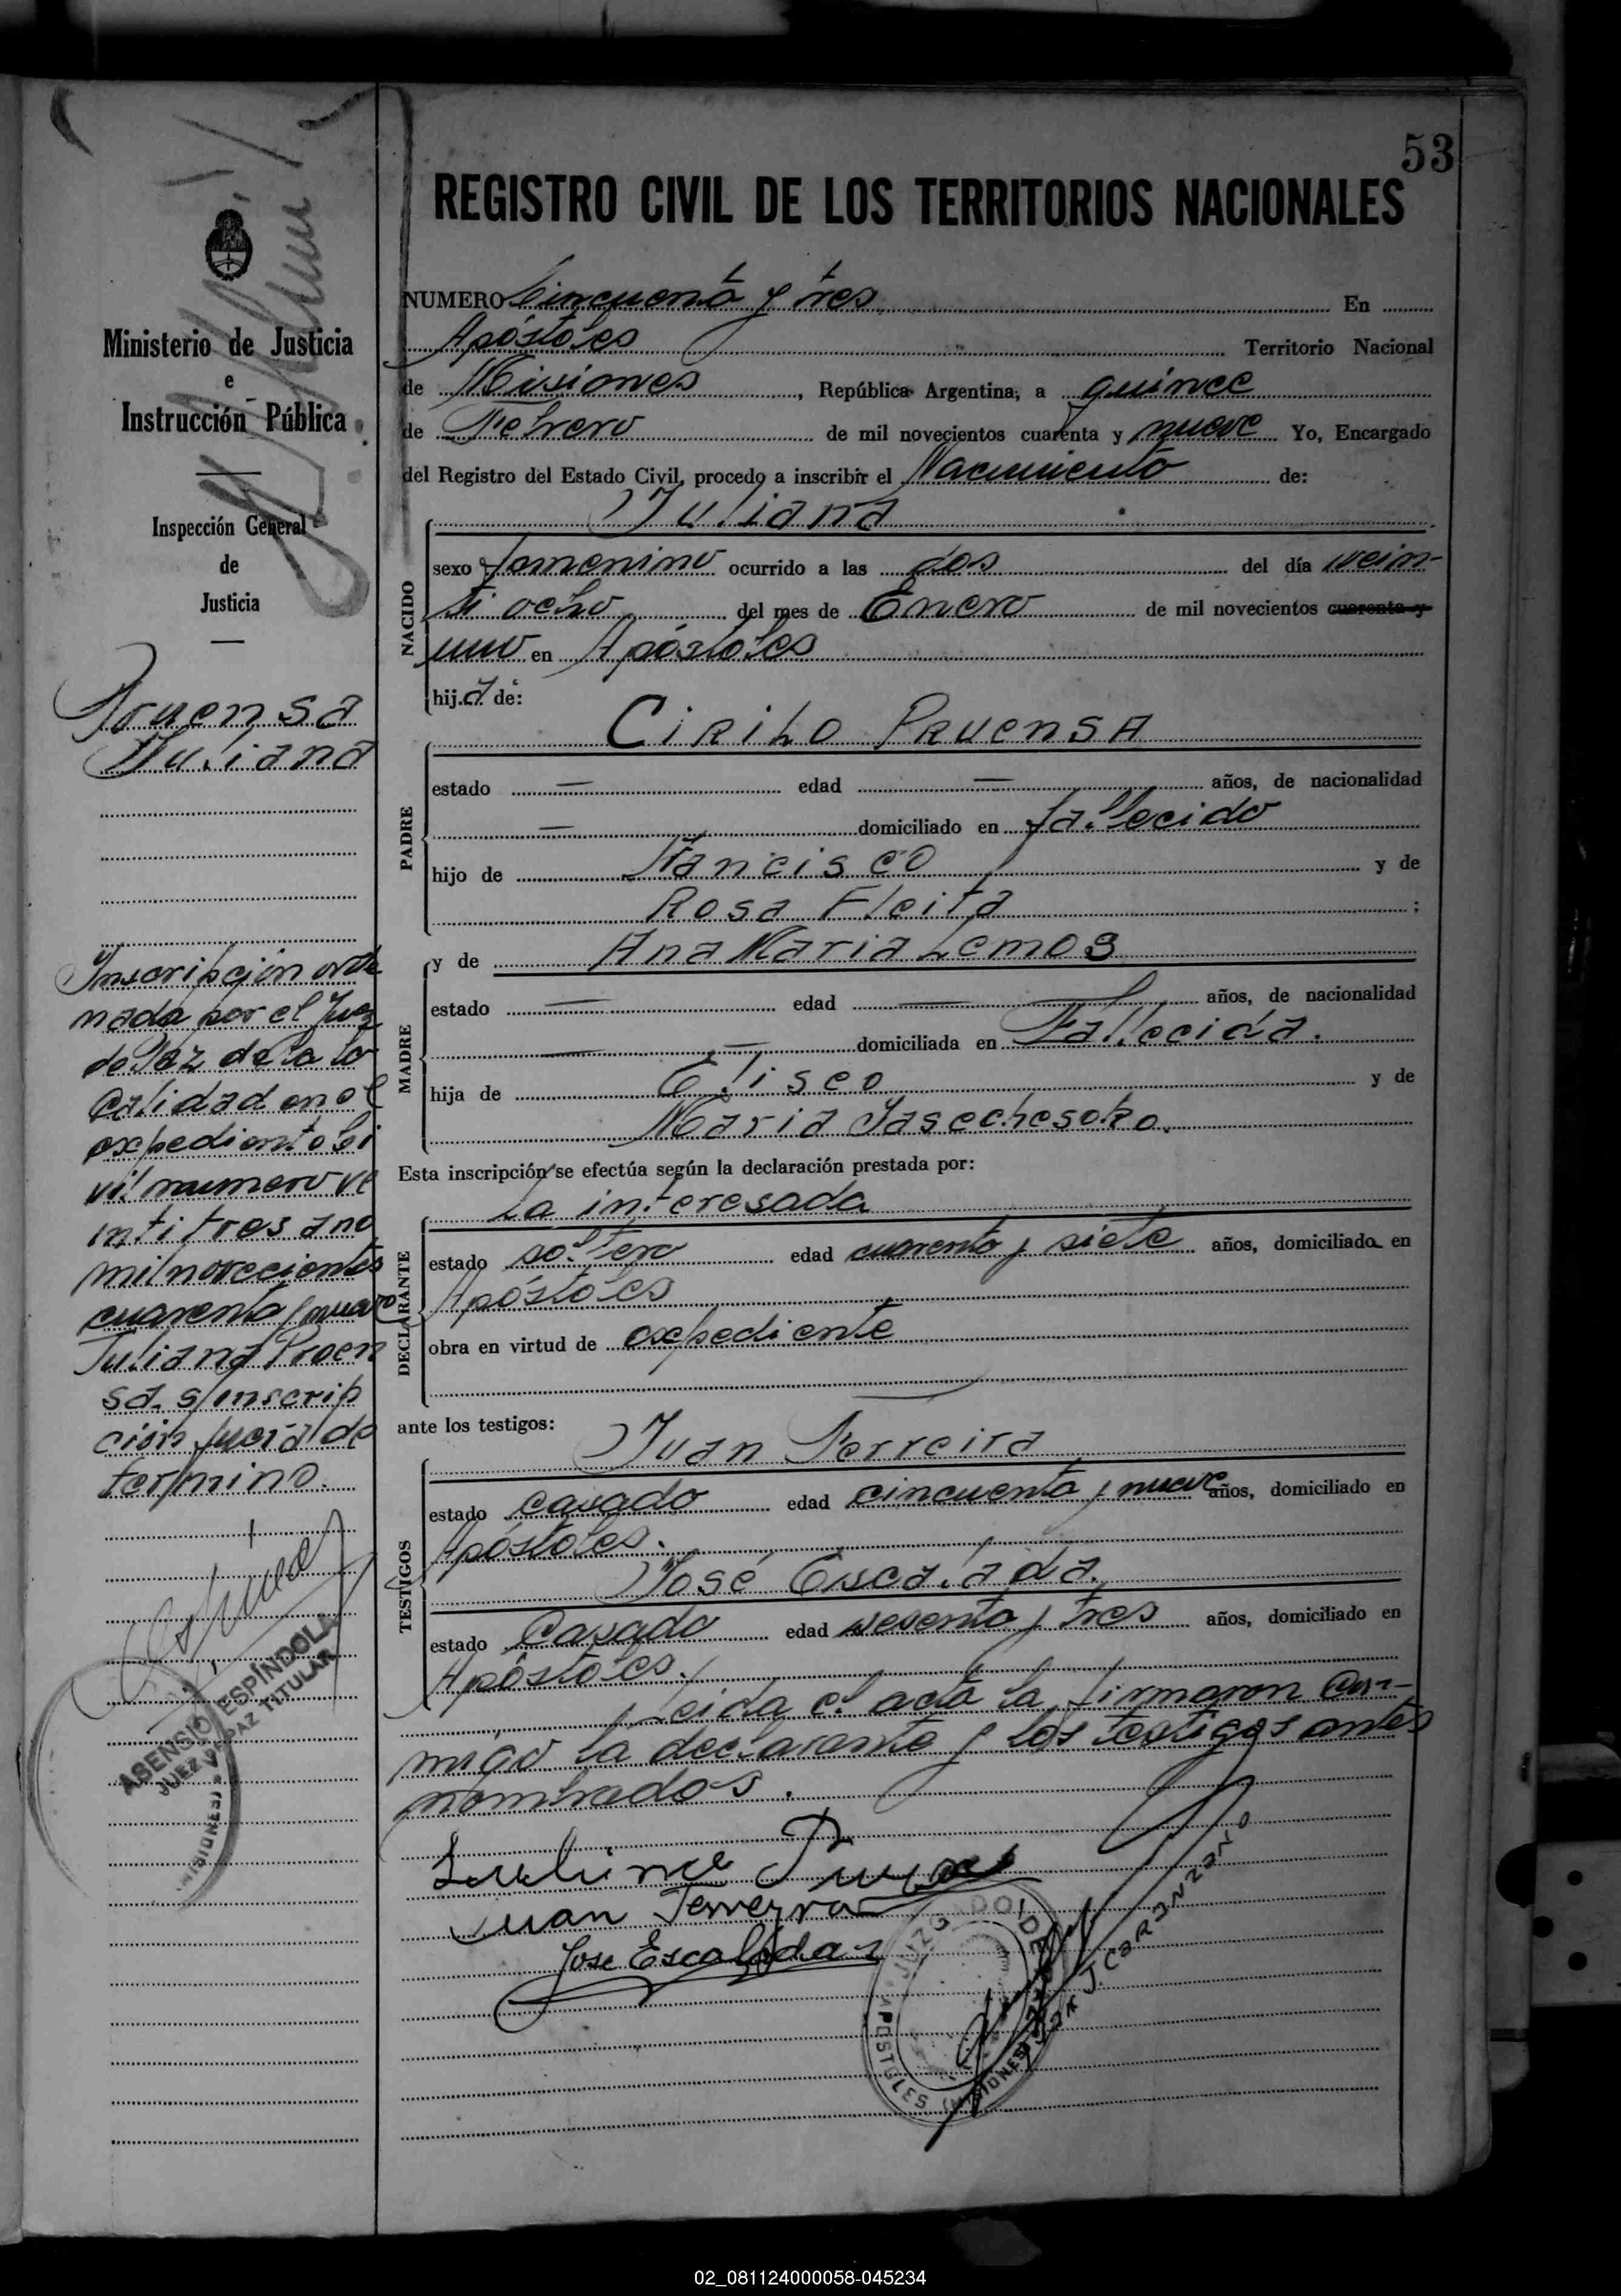 53
REGISTRO CIVIL DE LOS TERRITORIOS NACIONALES
Ministerio de Justicia
e
Instrucción Pública
Inspección General
de
Justicia
Pruensa
Juliana
Inscripción orde
nada por el Juez
de Paz de la lo
calidad en el
expediente Ci
vil numero ve
intitres año
mil novecientos
cuarenta y nueve
Juliana Proen
sa. s/inscrip
ción fuera de
termino.
ASENSIO ESPÍNDOLA
JUEZ DE PAZ TITULAR
MISIONES
NUMERO Cincuenta y tres En
Apóstoles Territorio Nacional
de Misiones, República Argentina, a quince
de Febrero de mil novecientos cuarenta y nueve Yo, Encargado
del Registro del Estado Civil, procedo a inscribir el Nacimiento de:
Juliana
NACIDO
sexo femenino ocurrido a las dos del día vein-
ti ocho del mes de Enero de mil novecientos cuarenta y
uno en Apóstoles
hija de:
CIRILO PRUENSA
PADRE
estado — edad — años, de nacionalidad
— domiciliado en fallecido
hijo de Francisco y de
Rosa Fleita ;
y de Ana Maria Lemos
MADRE
estado — edad — años, de nacionalidad
— domiciliada en Fallecida.
hija de Eliseo y de
Maria
Esta inscripción se efectúa según la declaración prestada por:
La interesada
DECLARANTE
estado soltera edad cuarenta y siete años, domiciliada en
Apóstoles
obra en virtud de expediente
ante los testigos:
Juan Ferreira
TESTIGOS
estado casado edad cincuenta y nueve años, domiciliado en
Apóstoles.
José Escalada.
estado Casado edad sesenta y tres años, domiciliado en
Apóstoles.
Leida el acta la firmaron con-
migo la declarante y los testigos antes
nombrados.
Juan Ferreyra
Jose Escalada
JUZGADO DE PAZ
APOSTOLES (MISIONES)